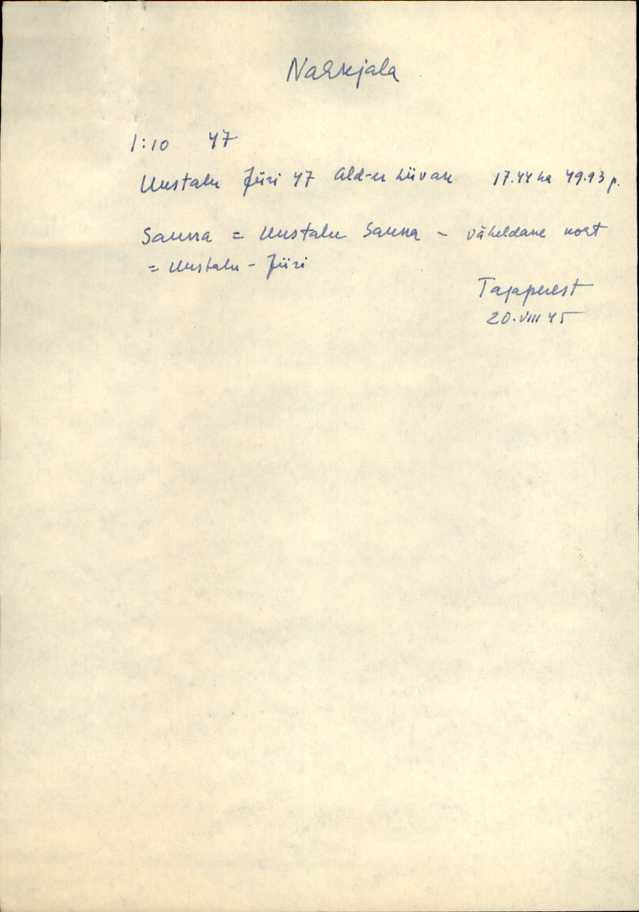 Nakkjala
1:10 47
Uustalu Jüri 47 Ald-er Liivak 17.44 ha 49.93 p.
Sauna = Uustalu Sauna - väheldane koht
= Uustalu - Jüri
Tajapuest
20.VIII 45